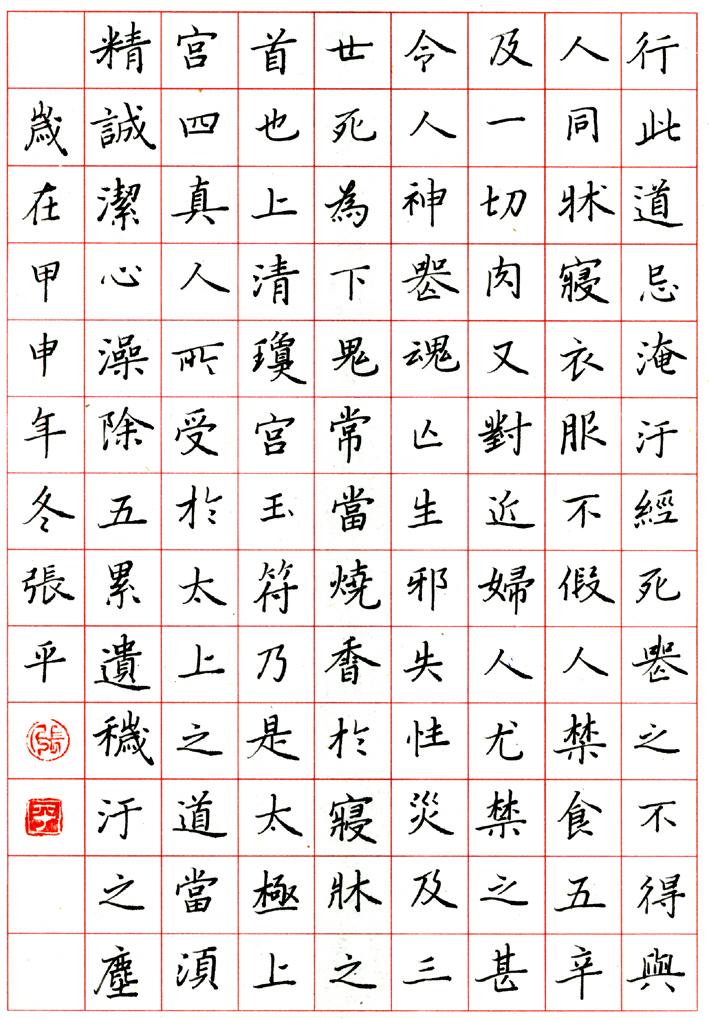 行此道忌淹汙經死喪之不得與
人同牀寢衣服不假人禁食五辛
及一切肉又對近婦人尤禁之甚
令人神喪魂亾生邪失性災及三
世死為下鬼常當燒香於寢牀之
首也上清瓊宮玉符乃是太極上
宮四真人所受於太上之道當須
精誠潔心澡除五累遺穢汙之塵
歲在甲申年冬張平
張
平